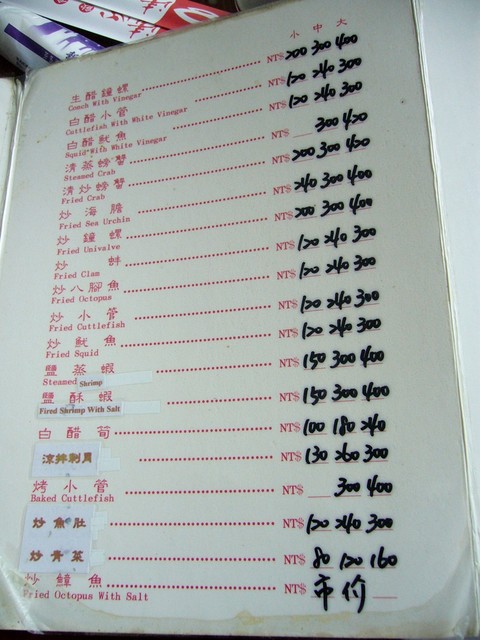 小 中 大
生醋鐘螺 NT$ 200 300 400
Conch With Vinegar
白醋小管 NT$ 120 240 300
Cuttlefish With White Vinegar
白醋魷魚 NT$ 120 240 300
Squid With White Vinegar
清蒸螃蟹 NT$ 300 420
Steamed Crab
清炒螃蟹 NT$ 200 300 420
Fried Crab
炒海膽 NT$ 240 300 400
Fried Sea Urchin
炒鐘螺 NT$ 200 300 400
Fried Univalve
炒蚌 NT$ 120 240 300
Fried Clam
炒八腳魚 NT$ 120 240 300
Fried Octopus
炒小管 NT$ 120 240 300
Fried Cuttlefish
炒魷魚 NT$ 120 240 300
Fried Squid
鹽蒸蝦 NT$ 150 300 400
Steamed Shrimp
鹽酥蝦 NT$ 150 300 400
Fired Shrimp With Salt
白醋筍 NT$ 100 180 240
涼拌剝貝 NT$ 130 260 300
烤小管 NT$ 300 400
Baked Cuttlefish
炒魚肚 NT$ 120 240 300
炒青菜 NT$ 80 120 160
炒鱆魚 NT$ 市价
Fried Octopus With Salt